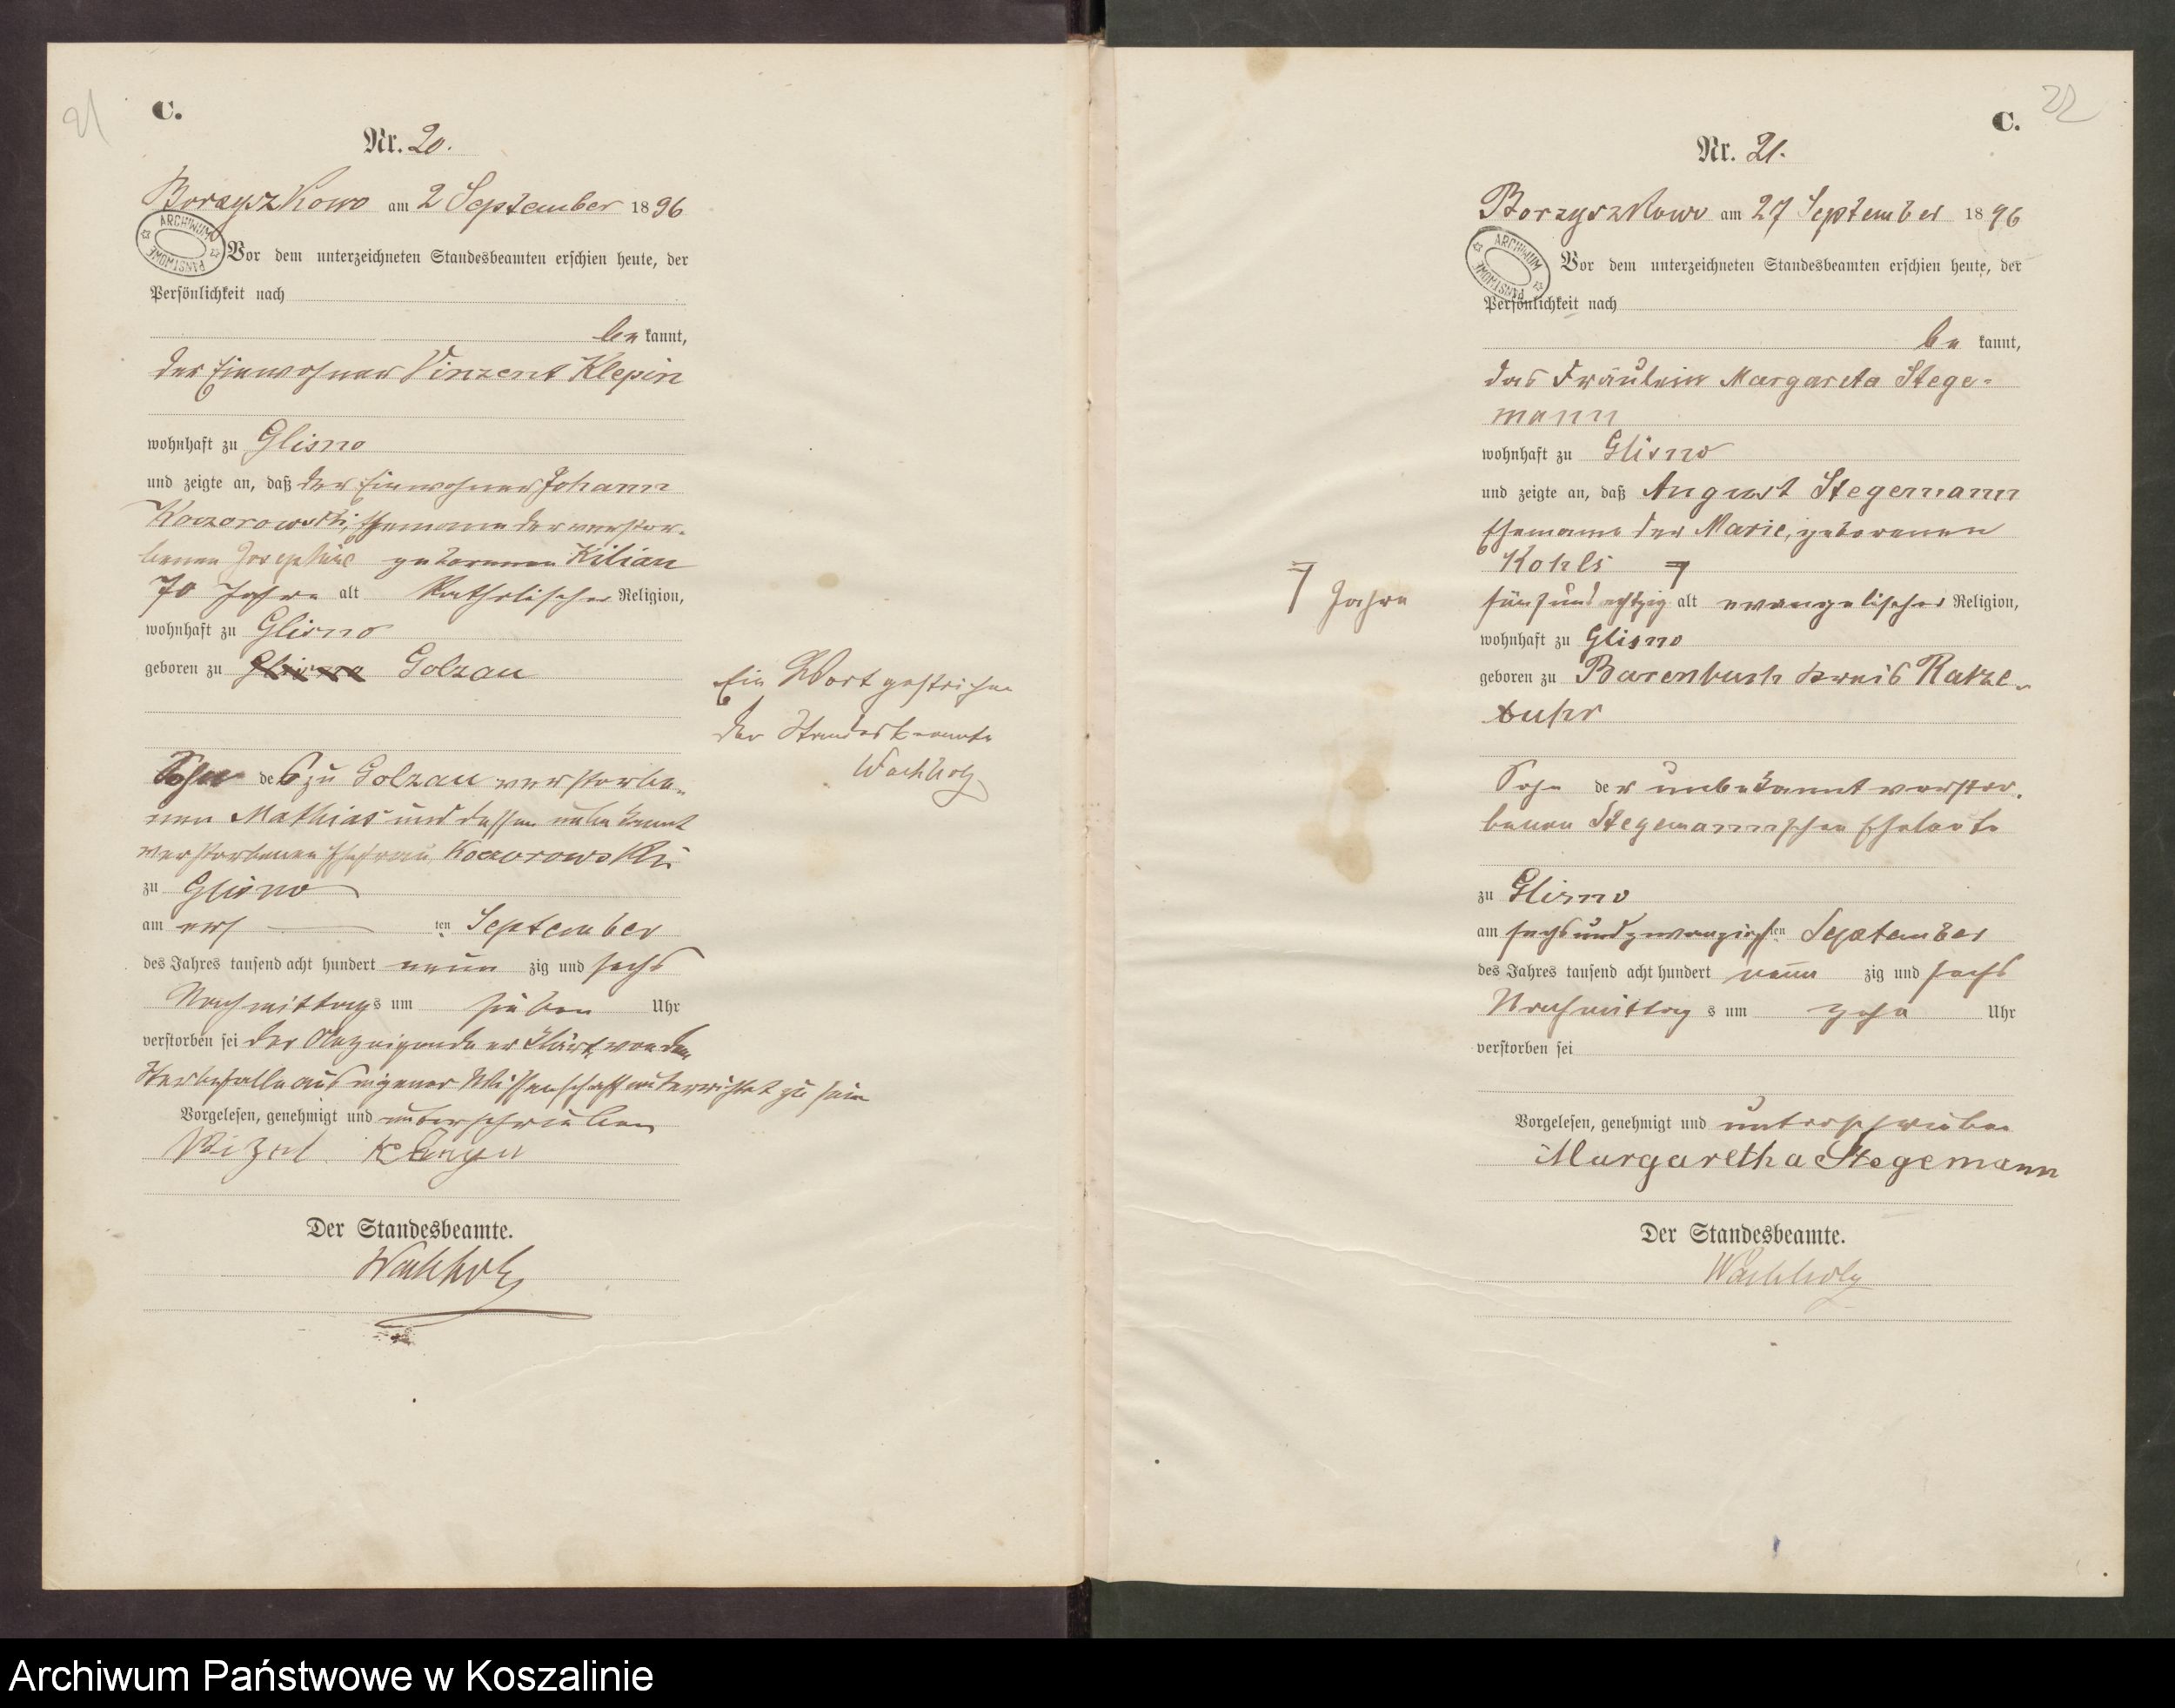 21
C.
Nr. 20.
Borzyszkowo am 2 September 1896
ARCHIWUM PAŃSTWOWE
Vor dem unterzeichneten Standesbeamten erschien heute, der
Persönlichkeit nach
be kannt,
der Einwohner Vinzent Klepin
wohnhaft zu Glisno
und zeigte an, daß der Einwohner Johann
Koczorowski, Ehemann der verstor-
benen Josephine geborenen Kilian
70 Jahre alt katholischer Religion,
wohnhaft zu Glisno
geboren zu Glisno Golzau
Sohn des zu Golzau verstorbe-
nen Mathias und dessen unbekannt
verstorbenen Ehefrau Koczorowski
zu Glisno
am ers ten September
des Jahres tausend acht hundert neun zig und sechs
Nachmittags um sieben Uhr
verstorben sei der Anzeigende erklärt, von dem
Sterbefalle aus eigener Wissenschaft unterrichtet zu sein
Vorgelesen, genehmigt und unterschrieben
Der Standesbeamte.
Wachholz
Ein Wort gestrichen
der Standesbeamte
Wachholz
22
C.
Nr. 21.
Borzyszkowo am 27 September 1896
ARCHIWUM PAŃSTWOWE
Vor dem unterzeichneten Standesbeamten erschien heute, der
Persönlichkeit nach
be kannt,
das Fräulein Margareta Stege-
mann
wohnhaft zu Glisno
und zeigte an, daß August Stegemann
Ehemann der Marie, geborenen
Kohls
Jahre
fünfundachtzig alt evangelischer Religion,
wohnhaft zu Glisno
geboren zu Barenbusch Kreis Ratze-
buhr
Sohn der unbekannt verstor-
benen Stegemannschen Eheleute
zu Glisno
am sechsundzwanzigsten September
des Jahres tausend acht hundert neun zig und sechs
Nachmittag s um zehn Uhr
verstorben sei
Vorgelesen, genehmigt und unterschrieben
Margaretha Stegemann
Der Standesbeamte.
Wachholz
Archiwum Państwowe w Koszalinie